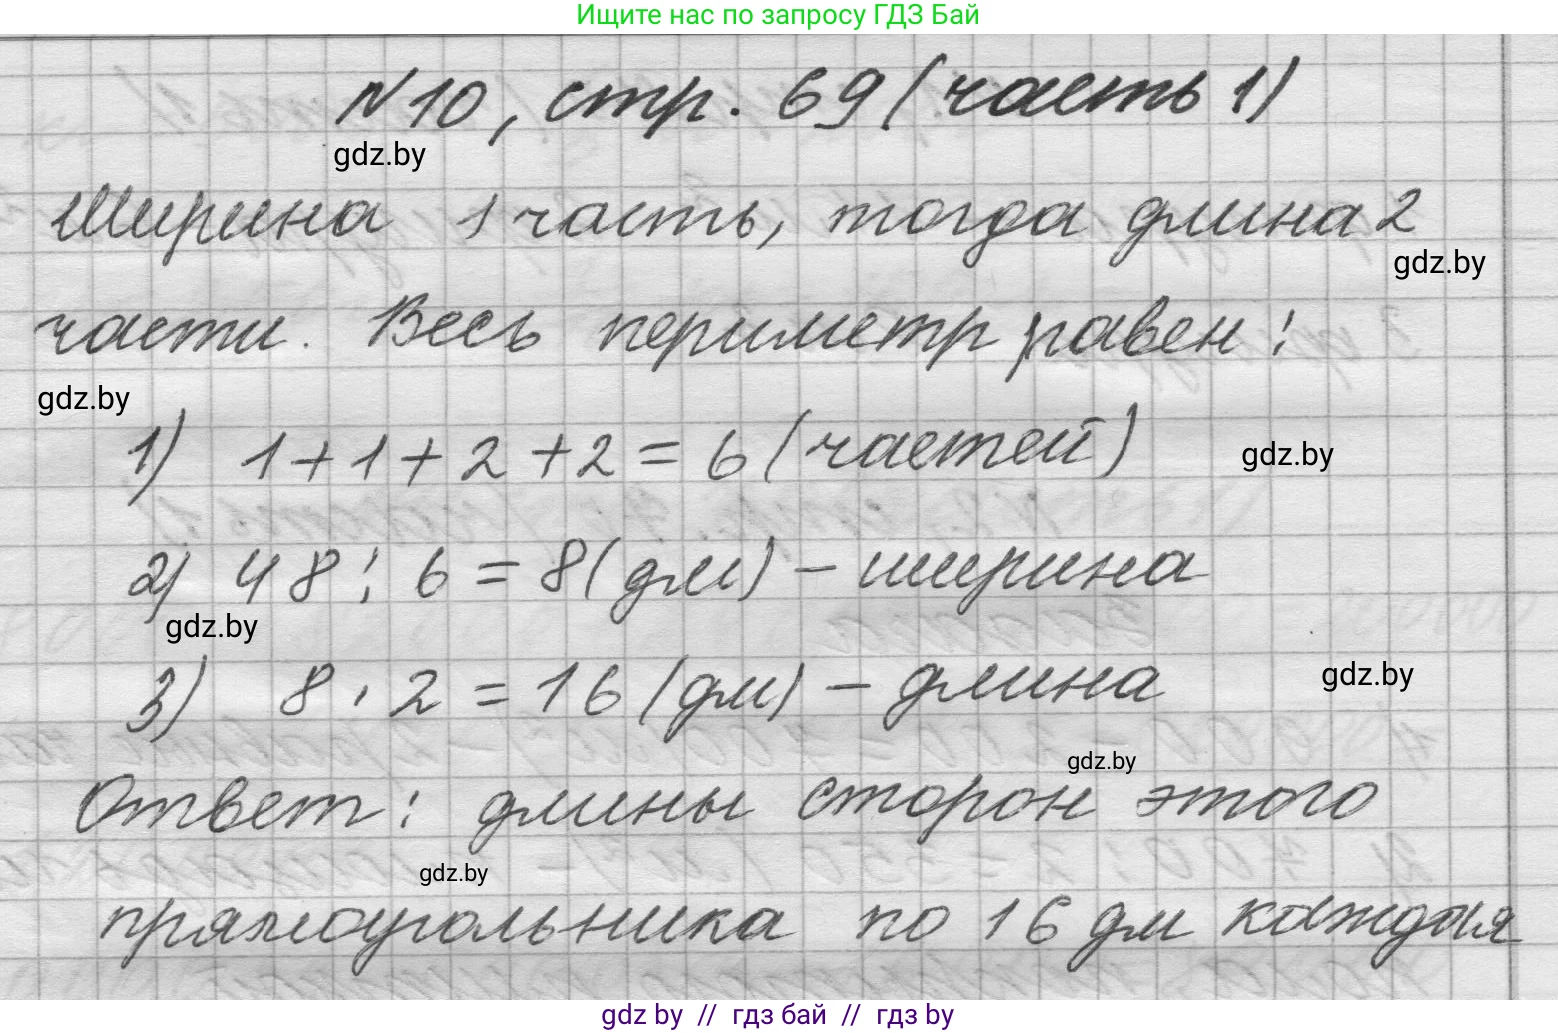 Ищите нас по запросу ГДЗ Бай
№10, стр. 69 (часть 1)
gdz.by
Ширина 1 часть, тогда длина 2
gdz.by
части. Весь периметр равен:
gdz.by
1) 1+1+2+2=6 (частей)
gdz.by
2) 48:6=8(дм) – ширина
gdz.by
3) 8·2=16(дм) – длина
gdz.by
gdz.by
Ответ: длины сторон этого
gdz.by
прямоугольника по 16 дм каждая
gdz by // гдз бай // gdz by